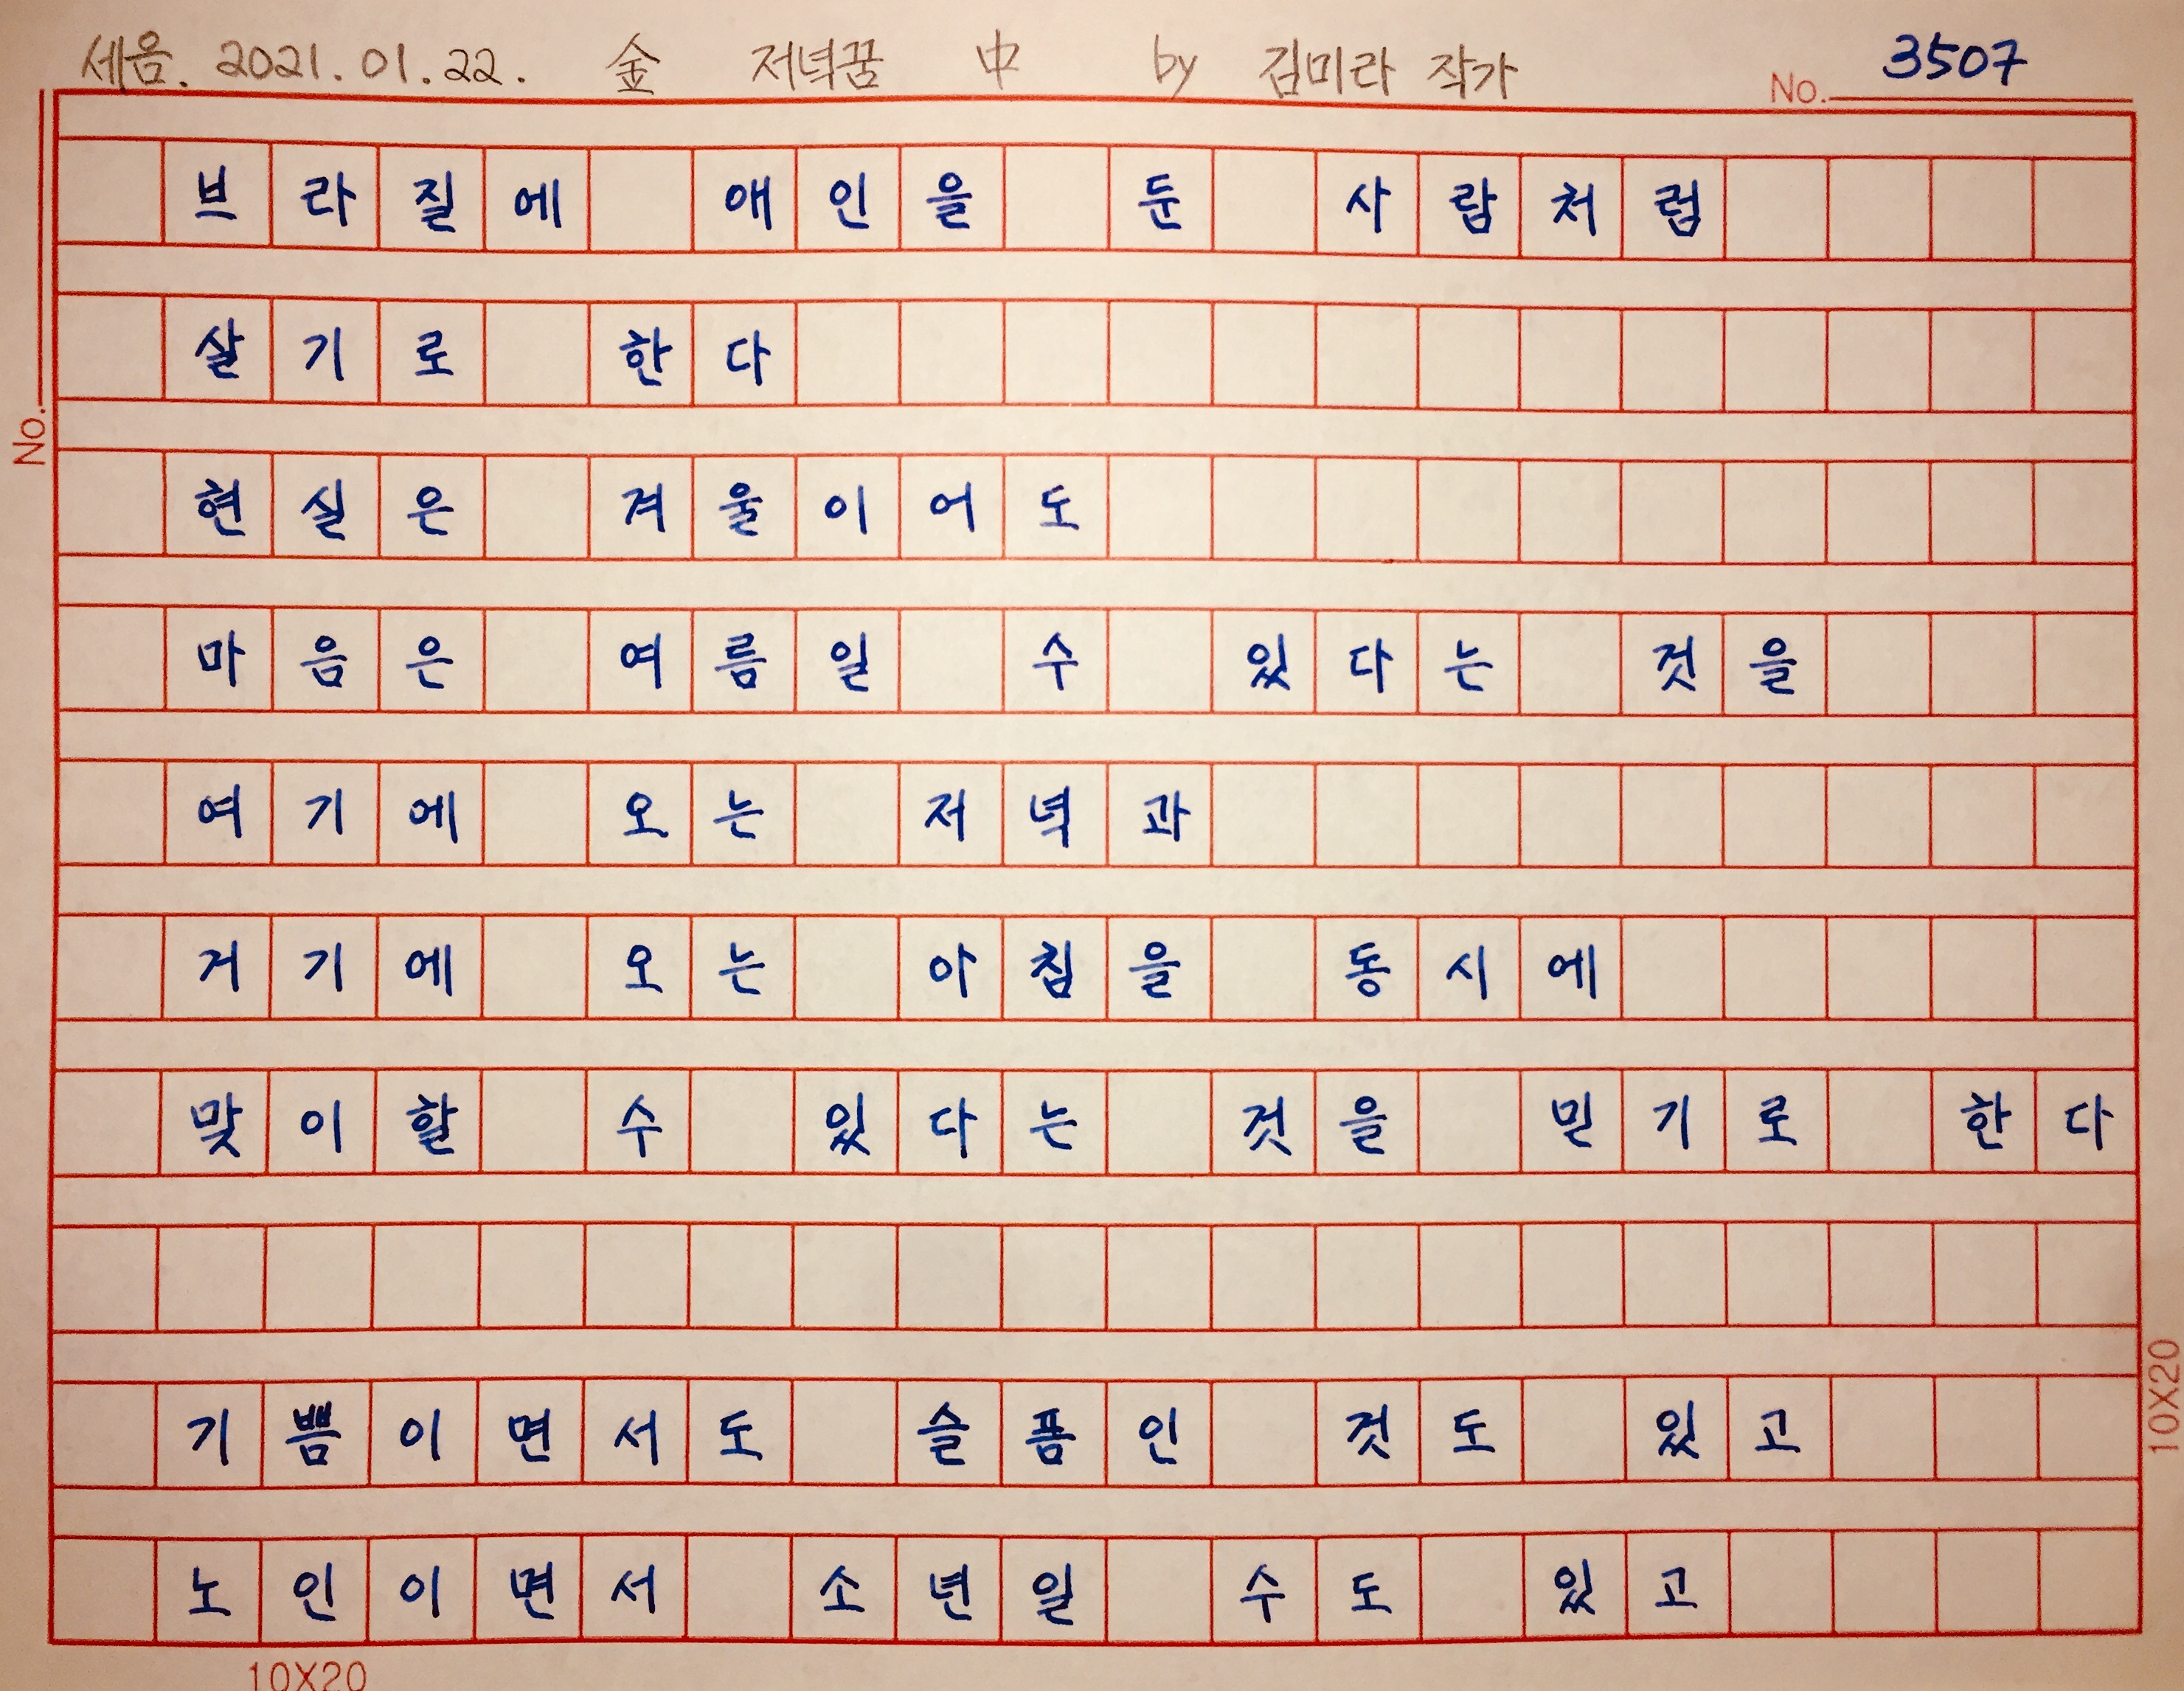 세음. 2021. 01. 22. 金 저녁꿈 中 by 김미라 작가
No. 3507
브라질에 애인을 둔 사람처럼
살기로 한다
No.
현실은 겨울이어도
마음은 여름일 수 있다는 것을
여기에 오는 저녁과
거기에 오는 아침을 동시에
맞이할 수 있다는 것을 믿기로 한다
기쁨이면서도 슬픔인 것도 있고
10X20
노인이면서 소년일 수도 있고
10X20